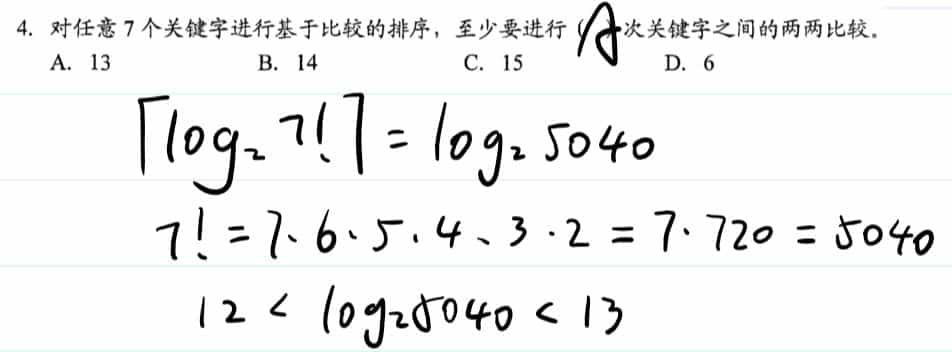 4. 对任意 7 个关键字进行基于比较的排序，至少要进行 ( A )次关键字之间的两两比较。
A. 13 B. 14 C. 15 D. 6
⌈log₂ 7!⌉ = log₂ 5040
7! = 7·6·5·4·3·2 = 7·720 = 5040
12 < log₂5040 < 13